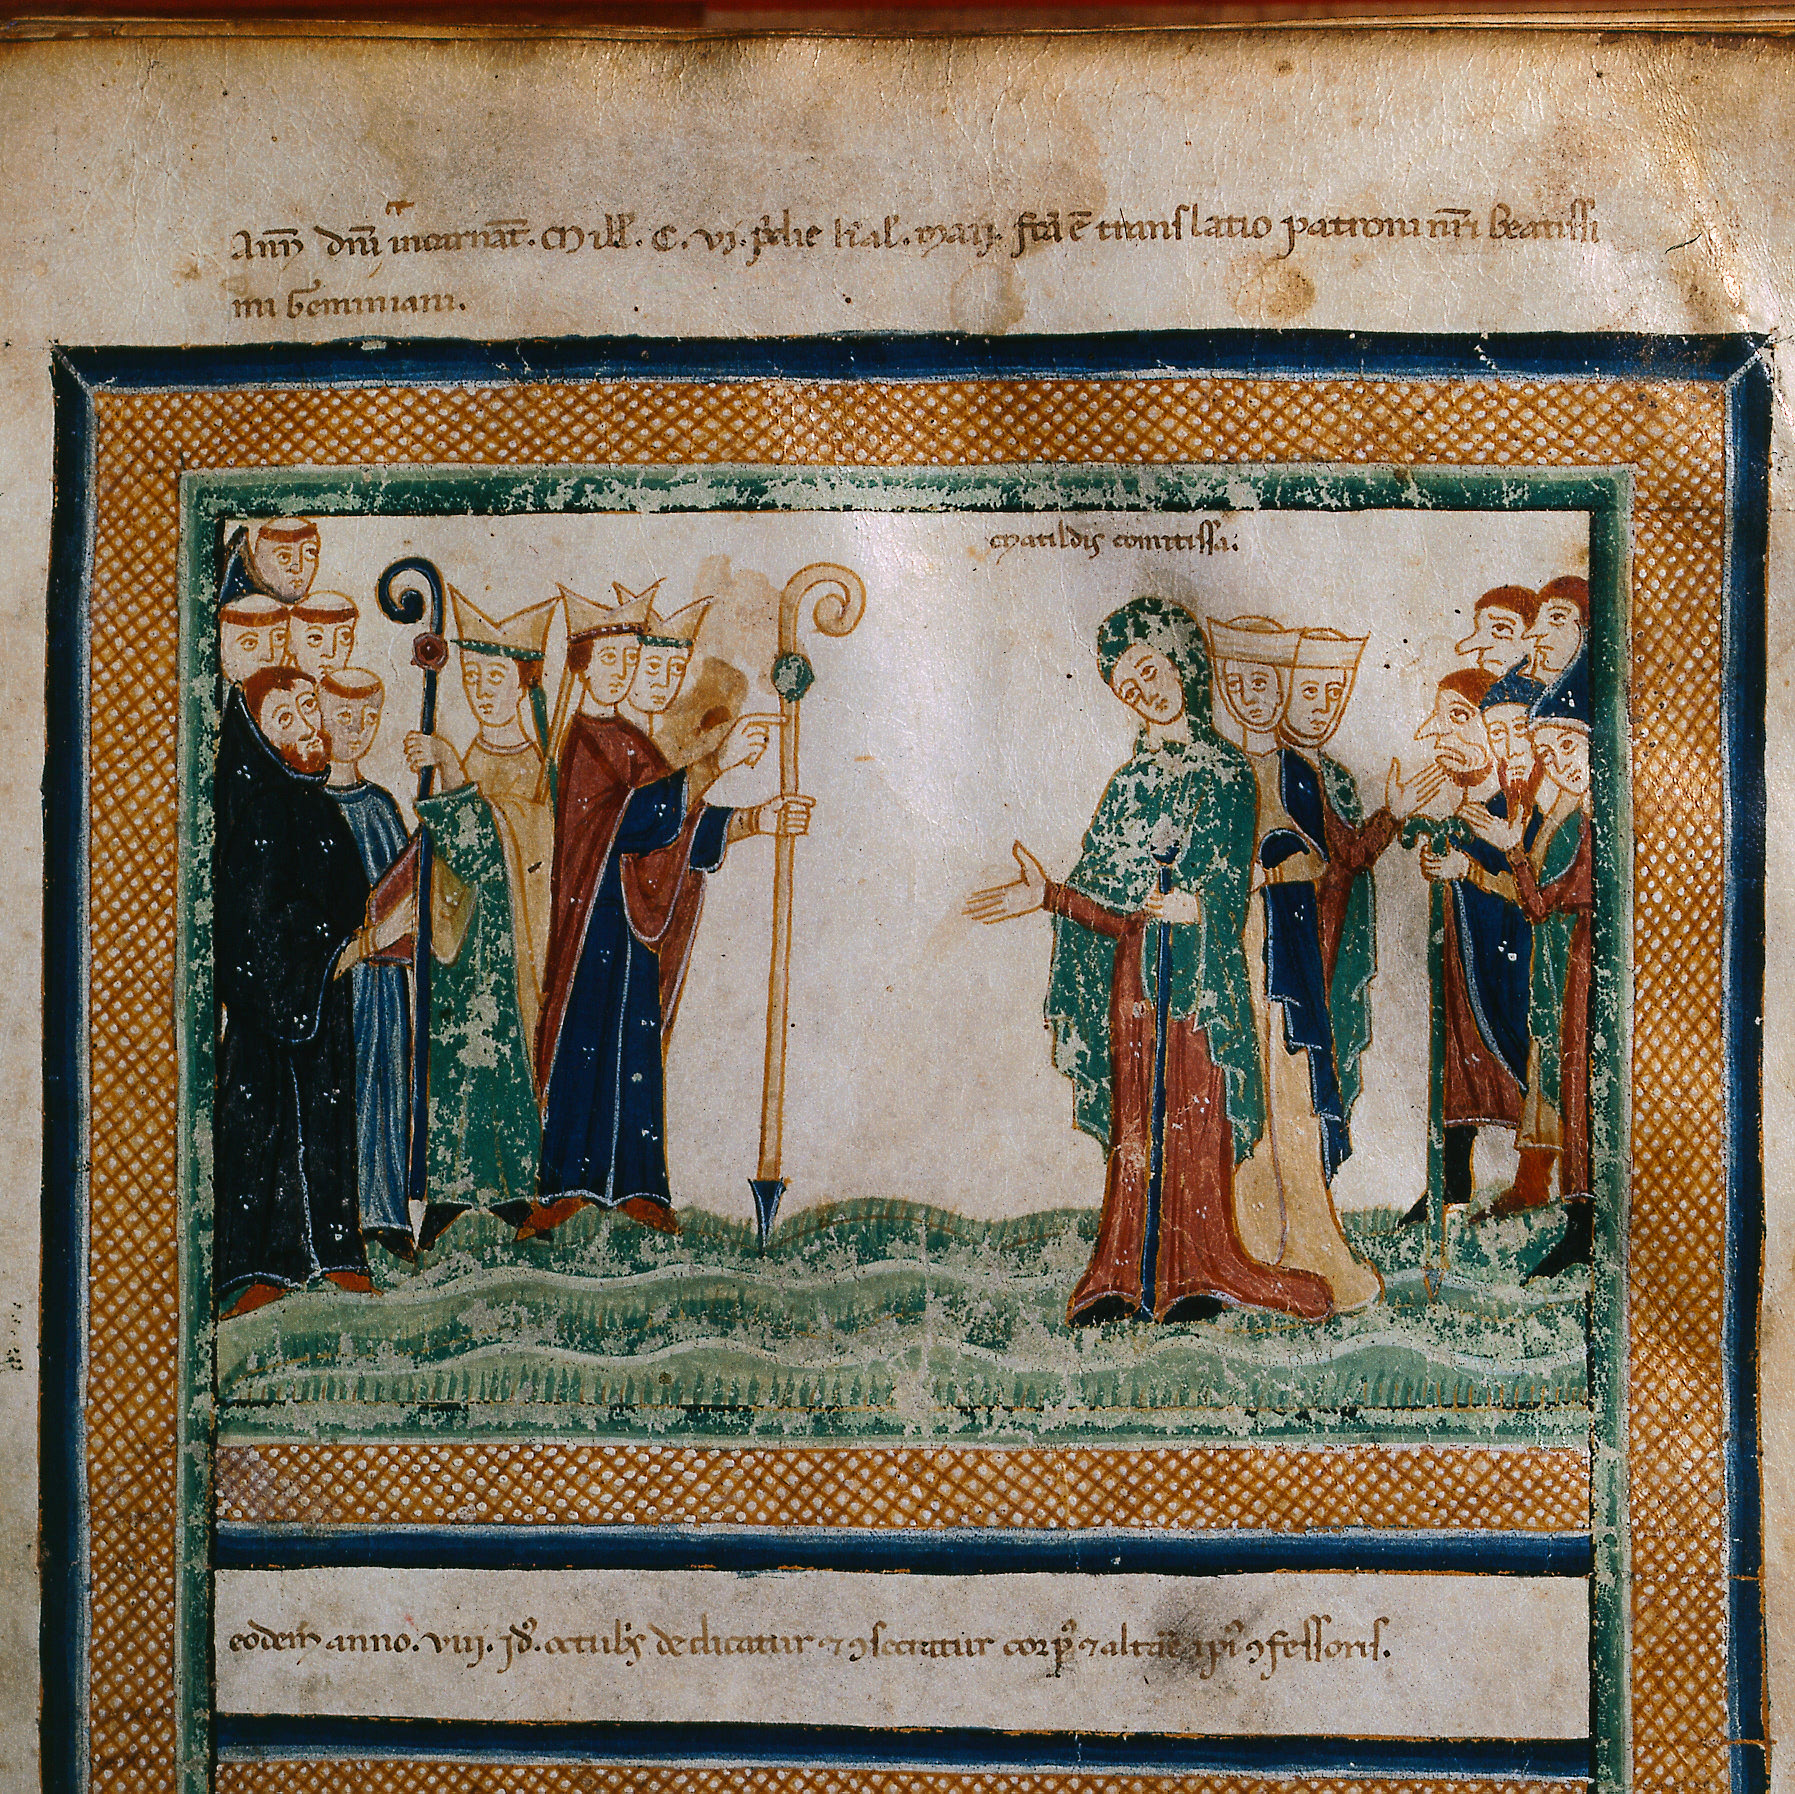 Ann̄ dn̄i incarnat̄. Mill̄. C. vi. p̄die kal̄. maij. fc̄a ē translatio patroni nr̄i beatissi
mi Geminiani.
Matildis comitissa.
eodem̄ anno. viij. jd̄. octub̄s dedicatur ⁊ ꝯsecratur corp̄ ⁊ altare ipi̅ ꝯfessoris.